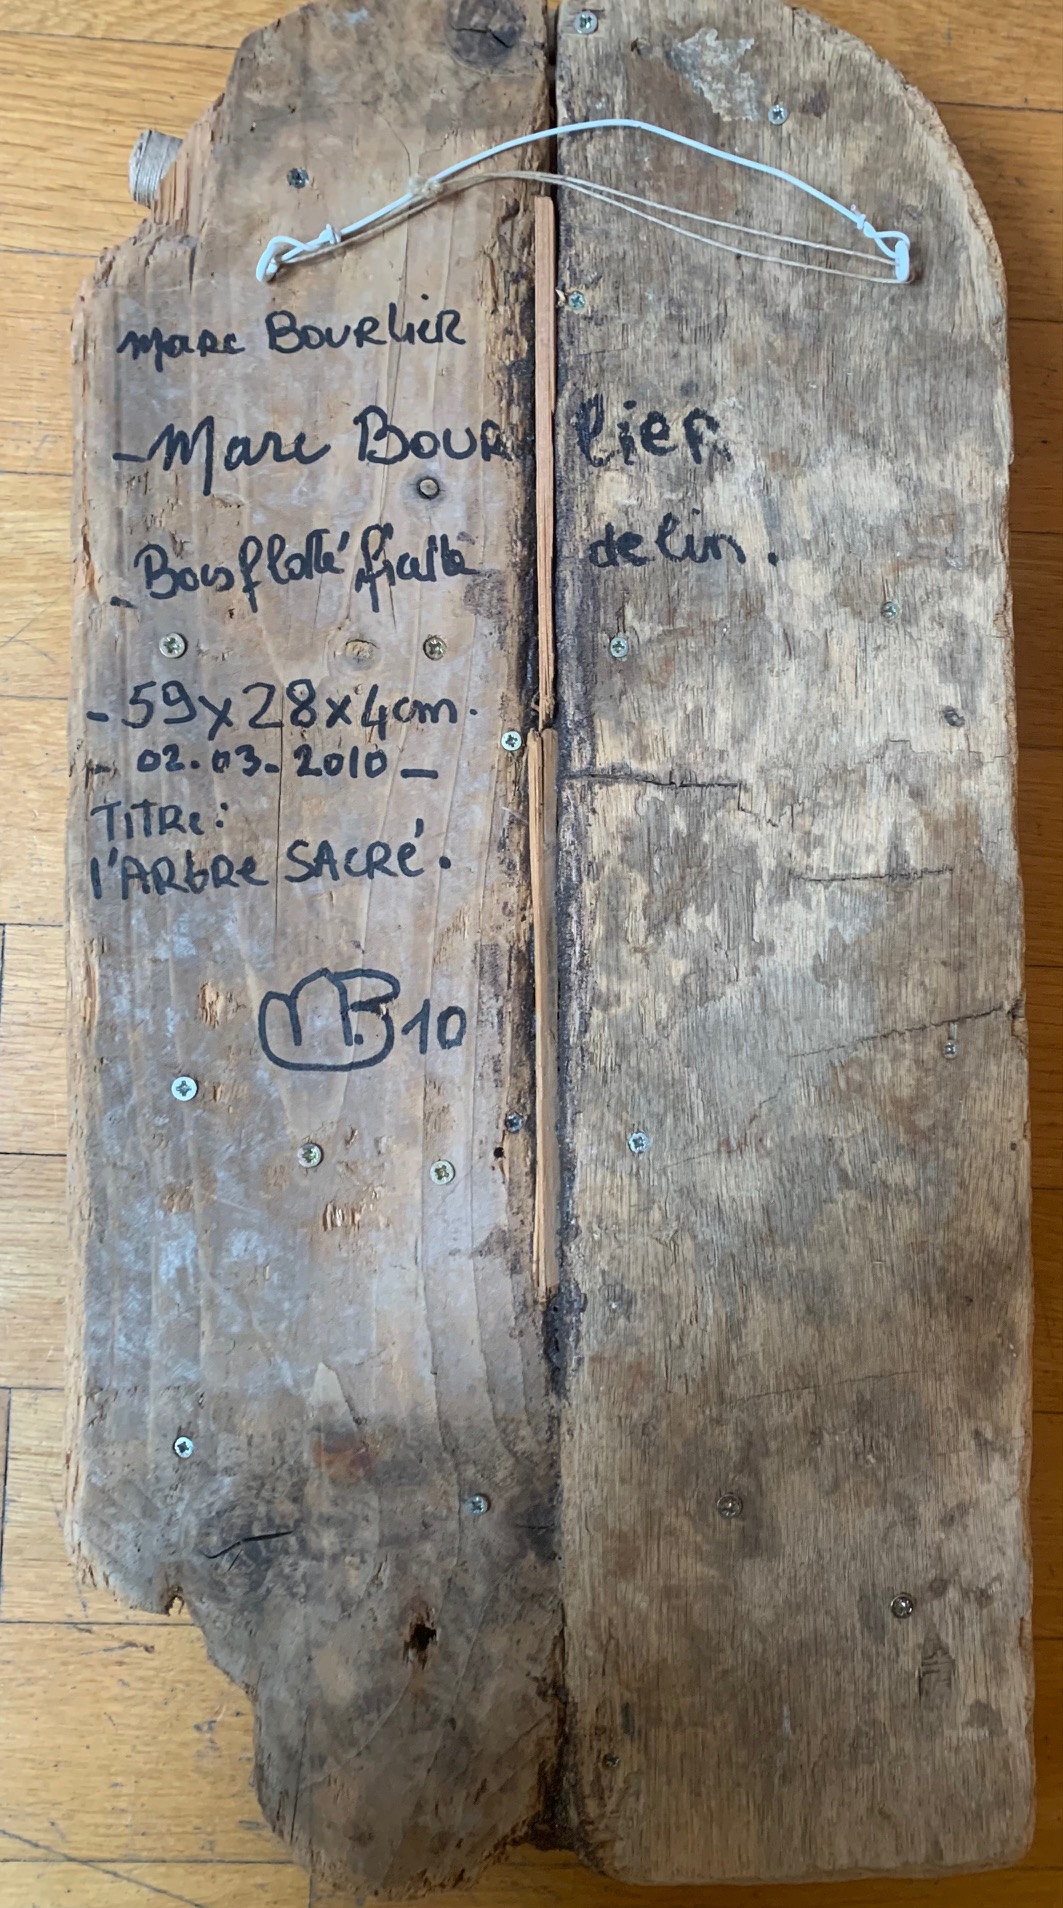 Marc BOURlieR
- Marc BOURlier
- Bois flotté ficelle de lin.
- 59x28x4cm.
- 02.03.2010 -
TITRe:
l'ARbRe SAcRé.
MB 10